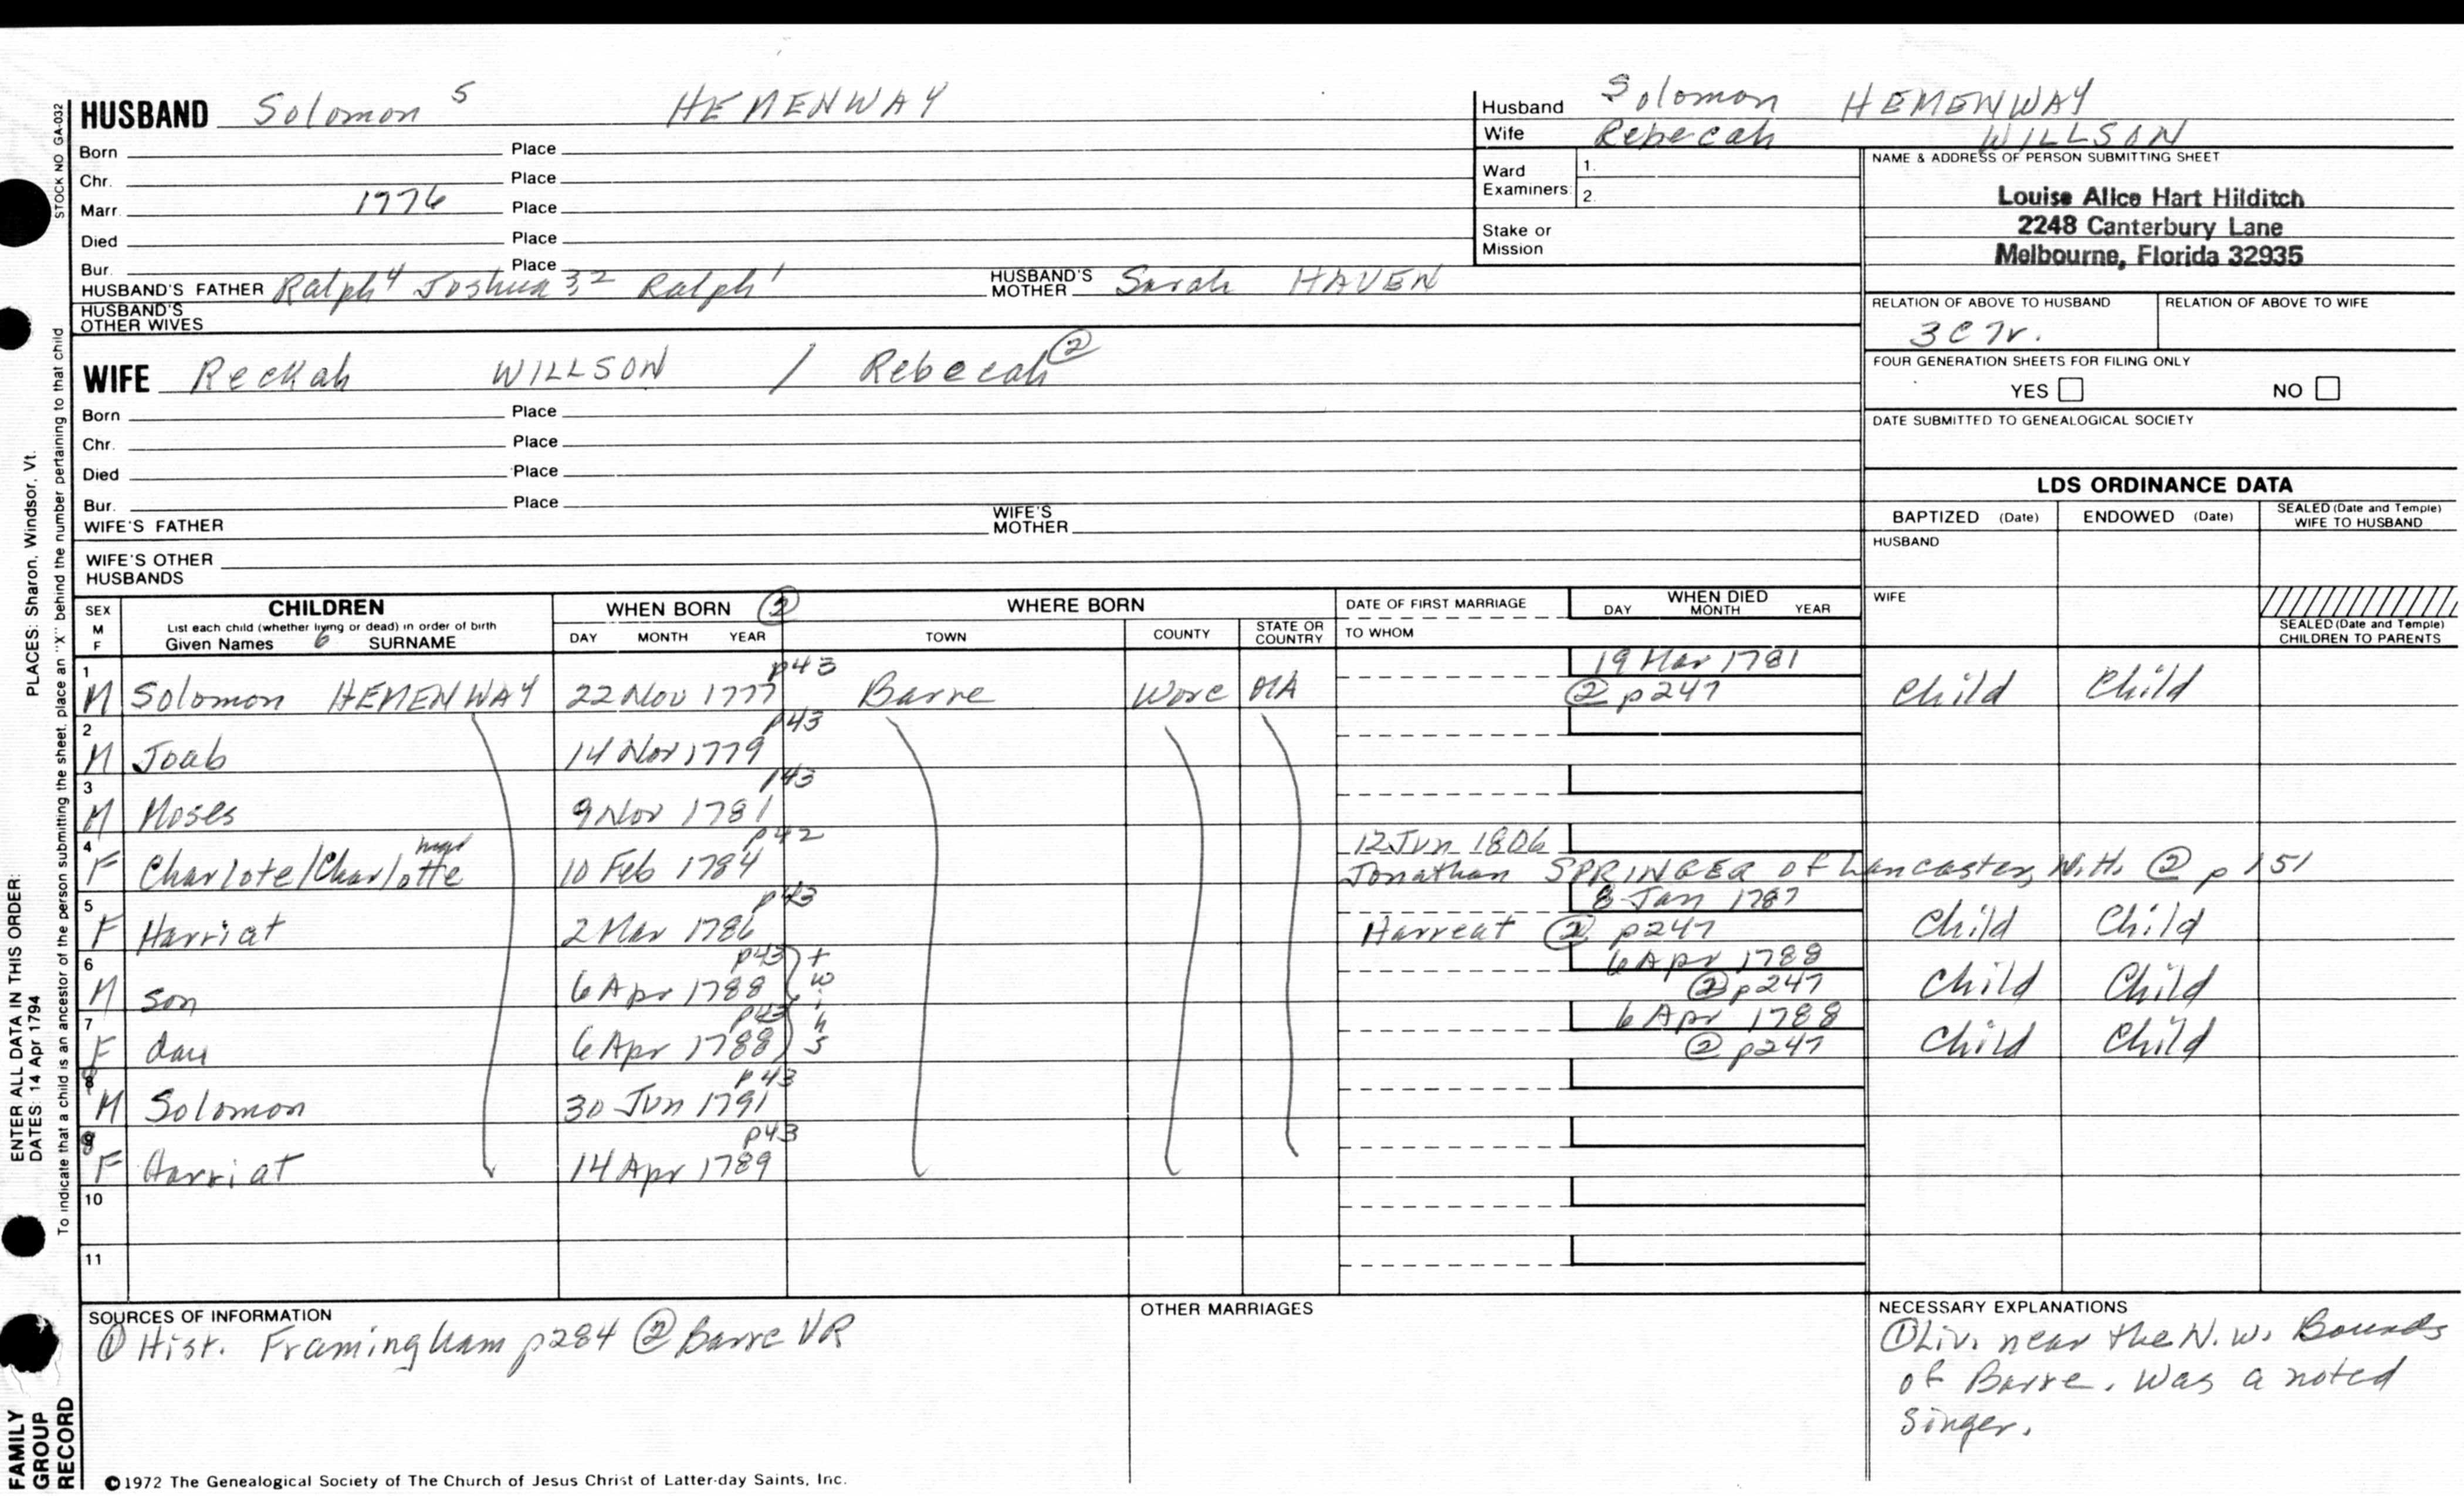 HUSBAND Solomon 5 HEMENWAY
Born Place
Chr. Place
Marr. 1776 Place
Died Place
Bur. Place
HUSBAND'S FATHER Ralph4 Joshua 3,2 Ralph1 HUSBAND'S MOTHER Sarah HAVEN
HUSBAND'S OTHER WIVES
WIFE Reckah WILLSON / Rebecah ②
Born Place
Chr. Place
Died Place
Bur. Place
WIFE'S FATHER WIFE'S MOTHER
WIFE'S OTHER HUSBANDS
Husband Solomon HEMENWAY
Wife Rebecah WILLSON
Ward Examiners: 1.
2.
Stake or Mission
NAME & ADDRESS OF PERSON SUBMITTING SHEET
Louise Alice Hart Hilditch
2248 Canterbury Lane
Melbourne, Florida 32935
RELATION OF ABOVE TO HUSBAND RELATION OF ABOVE TO WIFE
3C7r.
FOUR GENERATION SHEETS FOR FILING ONLY
YES NO
DATE SUBMITTED TO GENEALOGICAL SOCIETY
LDS ORDINANCE DATA
BAPTIZED (Date) ENDOWED (Date) SEALED (Date and Temple) WIFE TO HUSBAND
HUSBAND
WIFE
SEALED (Date and Temple) CHILDREN TO PARENTS
SEX M F CHILDREN WHEN BORN ② WHERE BORN DATE OF FIRST MARRIAGE WHEN DIED
List each child (whether living or dead) in order of birth DAY MONTH YEAR
Given Names 6 SURNAME DAY MONTH YEAR TOWN COUNTY STATE OR COUNTRY TO WHOM
1 p43 19 Mar 1781
M Solomon HEMENWAY 22 Nov 1777 Barre Worc MA ② p247 Child Child
2 p43
M Joab 14 Nov 1779
3 143
M Moses 9 Nov 1781
4 p42 12 Jun 1806
F Charlote/Charlotte 10 Feb 1784 Jonathan SPRINGER of Lancaster, N.H. ② p 151
5 p43 8 Jan 1787
F Harriat 2 Mar 1786 Harreat ② p247 Child Child
6 p43 6 Apr 1788
M son 6 Apr 1788 twins ② p247 Child Child
7 p43 6 Apr 1788
F dau 6 Apr 1788 ② p247 Child Child
8 p43
M Solomon 30 Jun 1791
9 p43
F Harriat 14 Apr 1789
10
11
SOURCES OF INFORMATION
① Hist. Framingham p284 ② Barre VR
OTHER MARRIAGES
NECESSARY EXPLANATIONS
① Liv. near the N.W. Bounds
of Barre. Was a noted
singer.
©1972 The Genealogical Society of The Church of Jesus Christ of Latter-day Saints, Inc.
STOCK NO. GA-032
To indicate that a child is an ancestor of the person submitting the sheet, place an "X" behind the number pertaining to that child
ENTER ALL DATA IN THIS ORDER: PLACES: Sharon, Windsor, Vt.
DATES: 14 Apr 1794
FAMILY
GROUP
RECORD